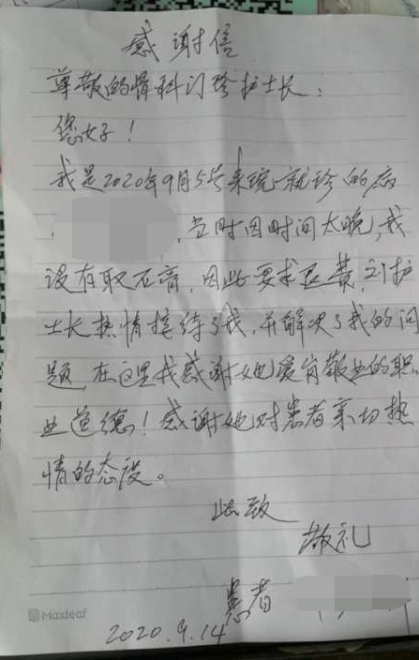 感谢信
尊敬的骨科门诊护士长：
您好！
我是2020年9月5号来院就诊的病
，当时因时间太晚，我
没有取石膏，因此要求退费，刘护
士长热情接待了我，并解决了我的问
题，在这里我感谢她爱岗敬业的职
业道德！感谢她对患者亲切热
情的态度。
此致
敬礼
患者
2020.9.14
Maxleaf